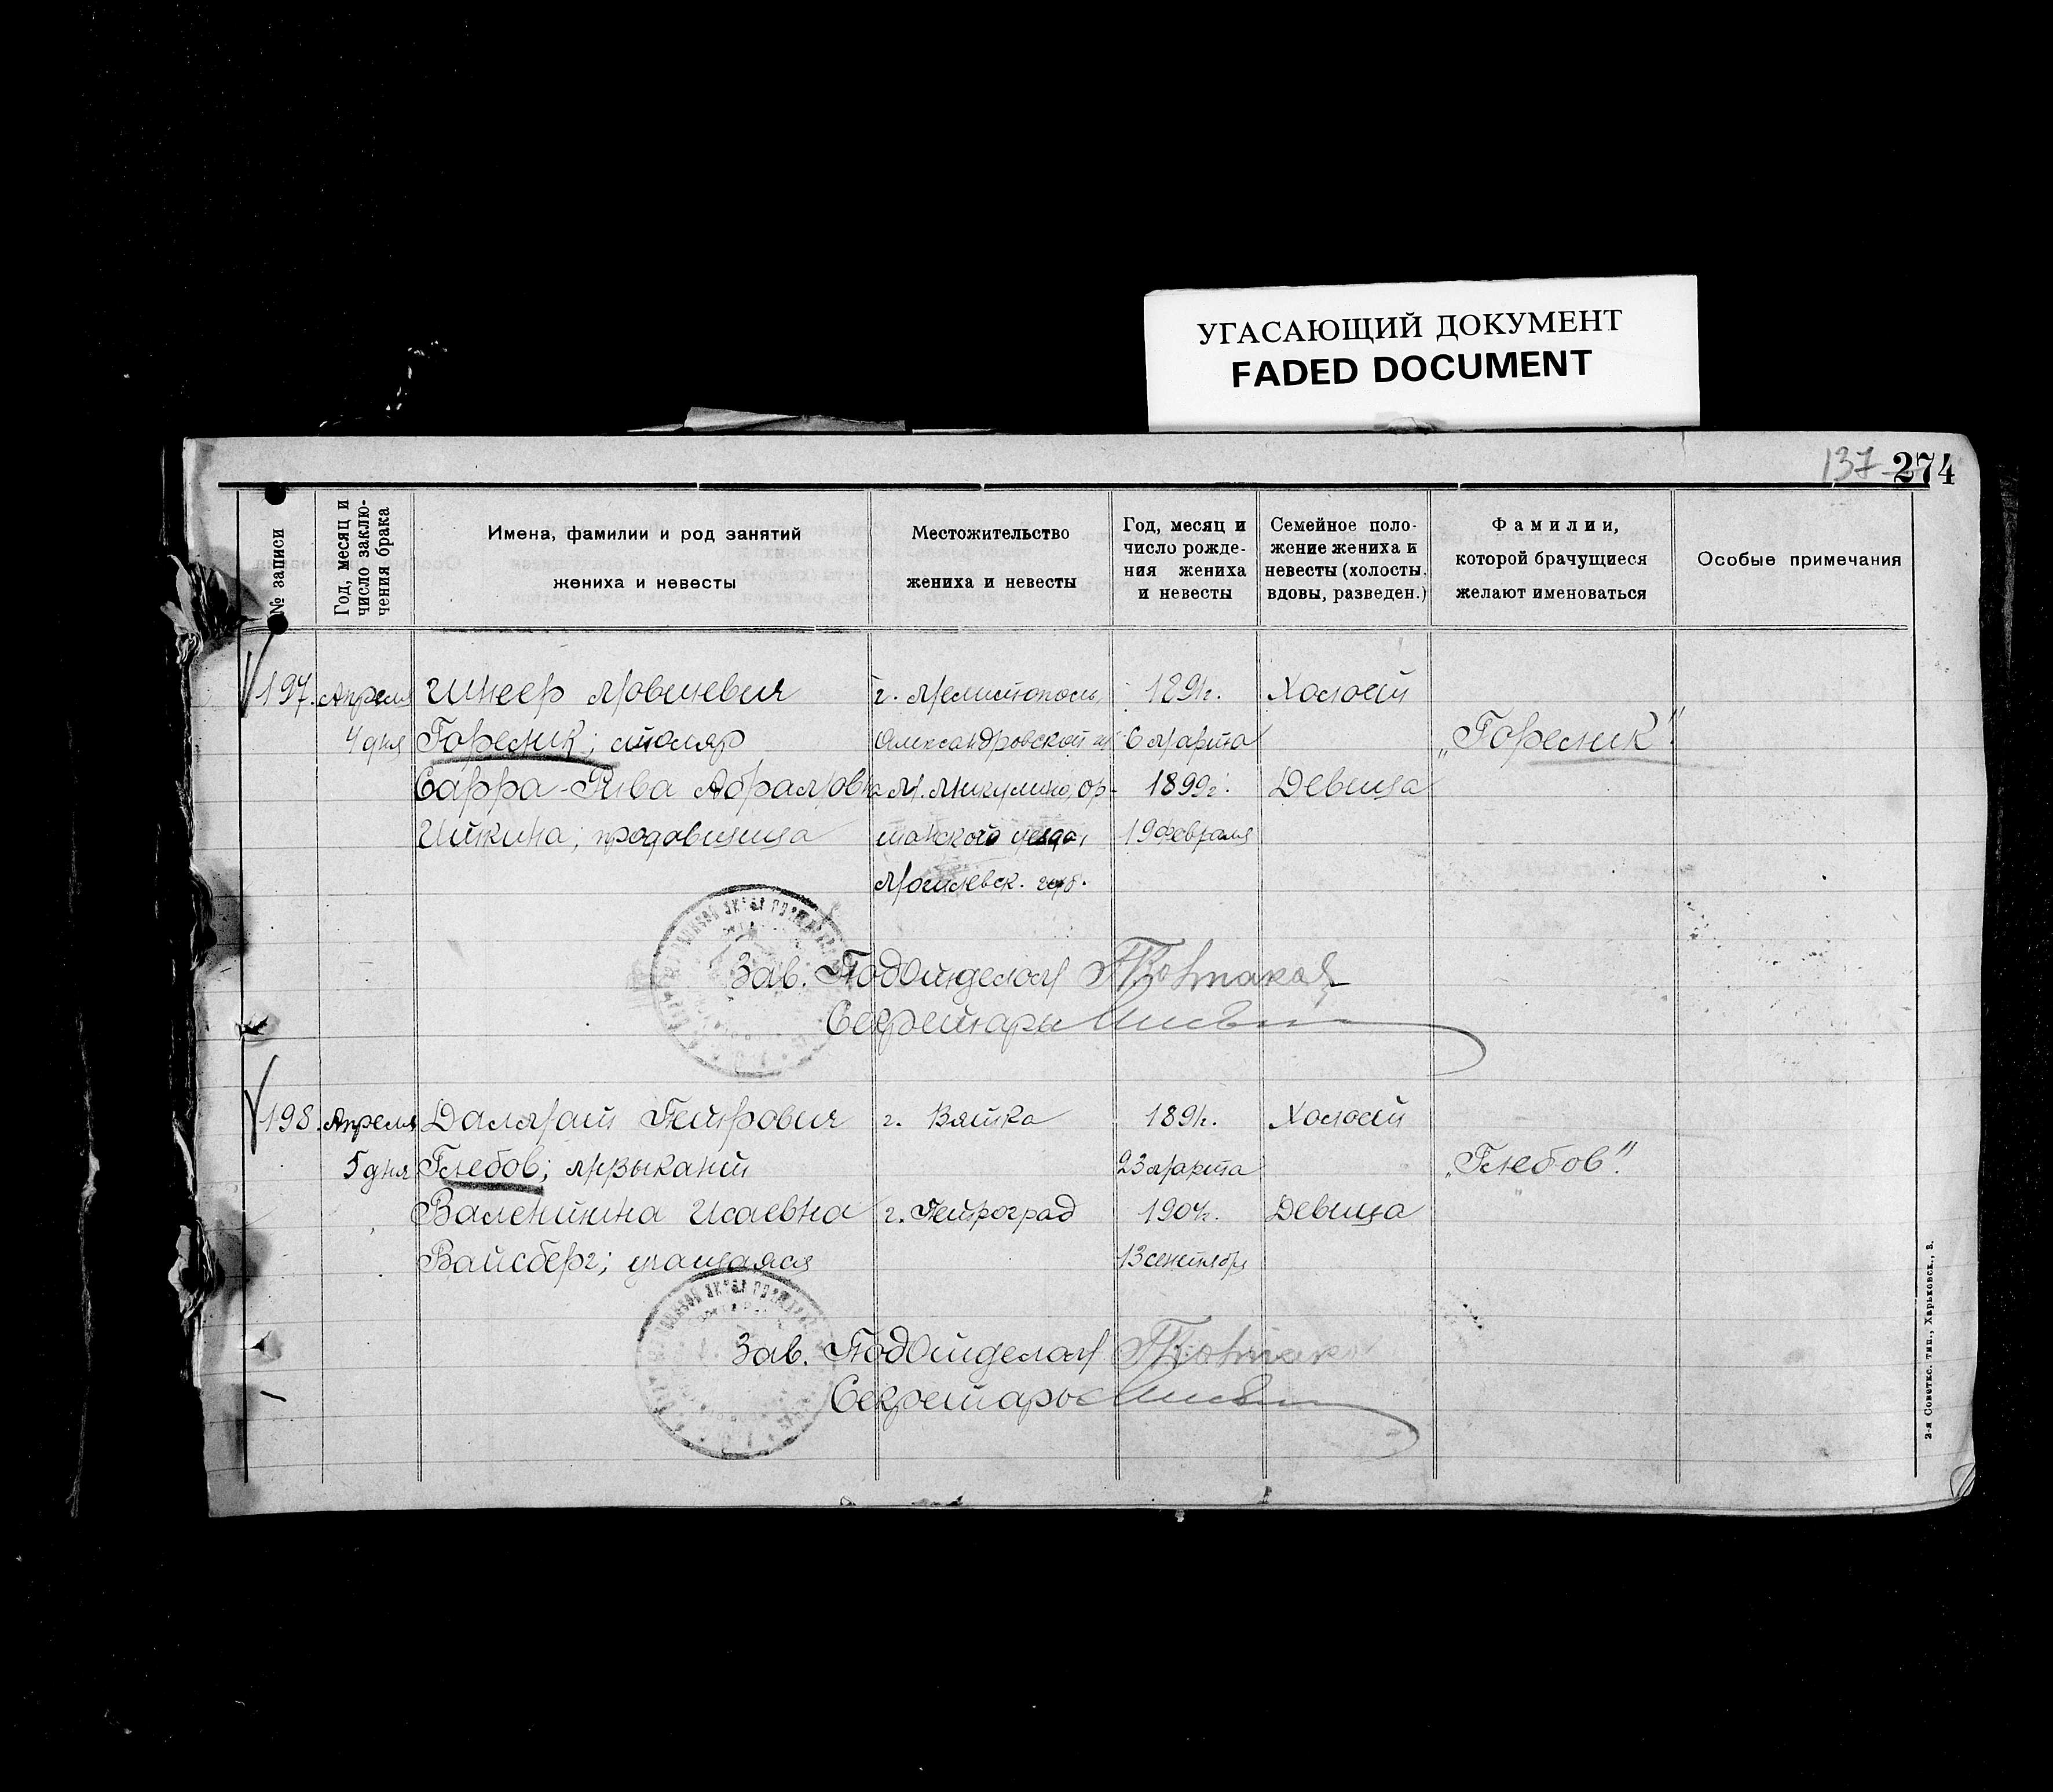 УГАСАЮЩИЙ ДОКУМЕНТ
FADED DOCUMENT
137 274
№ записи
Год, месяц и число заклю-чения брака
Имена, фамилии и род занятий
жениха и невесты
Местожительство
жениха и невесты
Год, месяц и
число рожде-
ния жениха
и невесты
Семейное поло-
жение жениха и
невесты (холосты,
вдовы, разведен.)
Фамилии,
которой брачущиеся
желают именоваться
Особые примечания
197. Апреля Шнеер Мовшевич г. Мелитополь, 1891г. Холост
4 дня Горелик; столяр Александровской 6 Марта „Горелик"
Сарра-Рива Абрамовна М. Микулино, Ор- 1899г. Девица
Иткина; продавщица шанского уезда, 19 февраля
Могилевск. губ.
Зав. ПодОтделом
Секретарь
198. Апреля Далмат Петрович г. Вятка 1891г. Холост
5 дня Глебов; музыкант 23 марта „Глебов".
Валентина Исаевна г. Петроград 1904г. Девица
Вайсберг; учащаяся 13 сентября
Зав. ПодОтделом
Секретарь
2-я Советск. тип., Харьковск., 3.